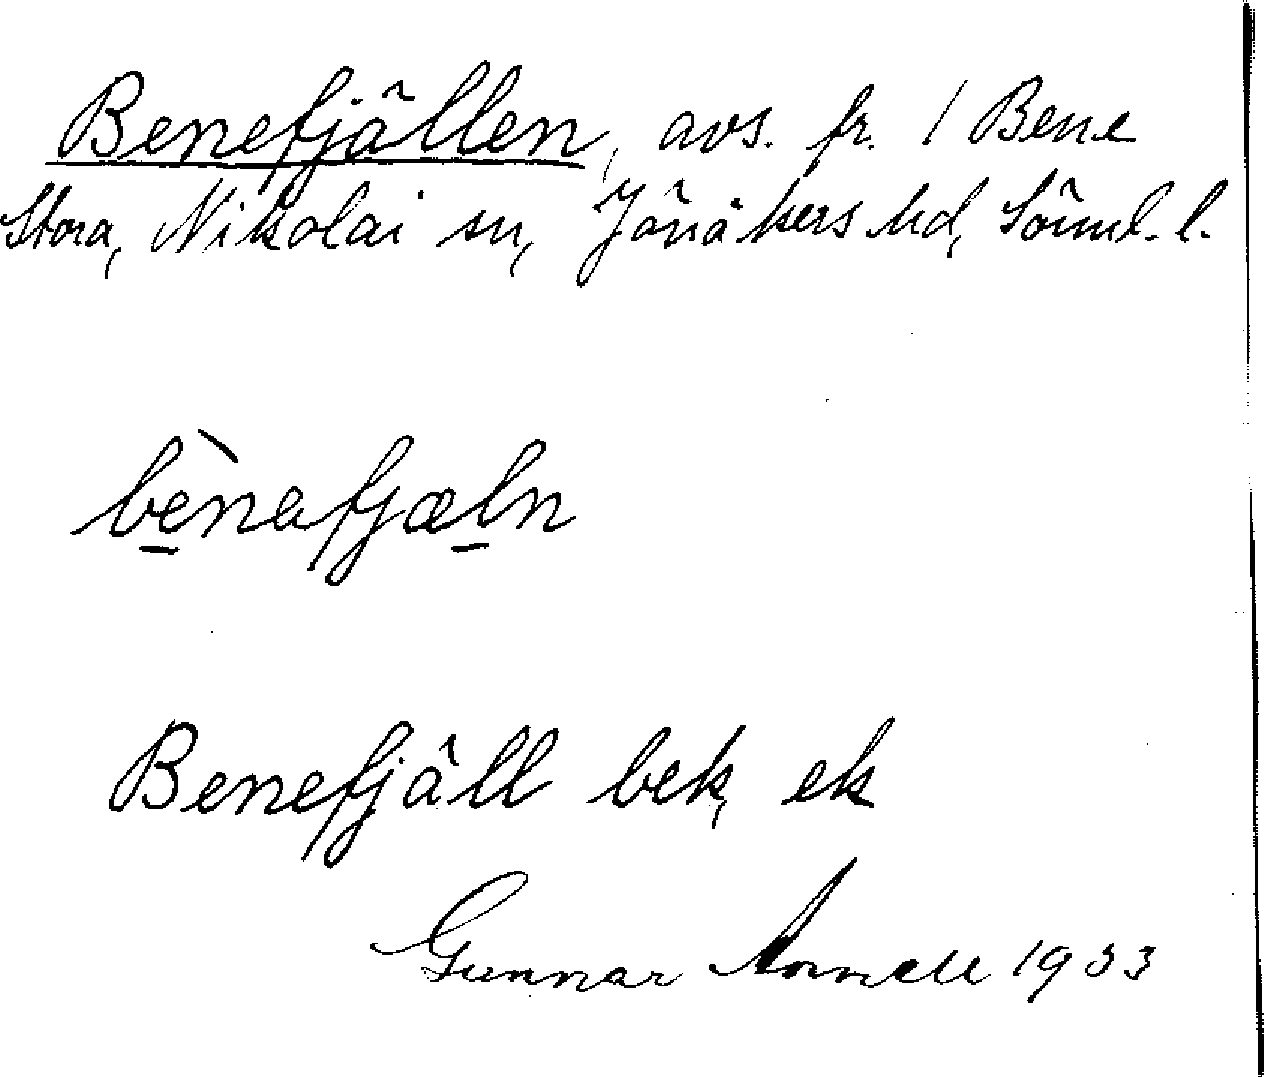 Benefjällen, avs. fr. 1 Bene
Stora, Nikolai sn, Jönåkers hd, Söderml. l.
bènafjæln
Benefjäll bek, ek
Gunnar 1933